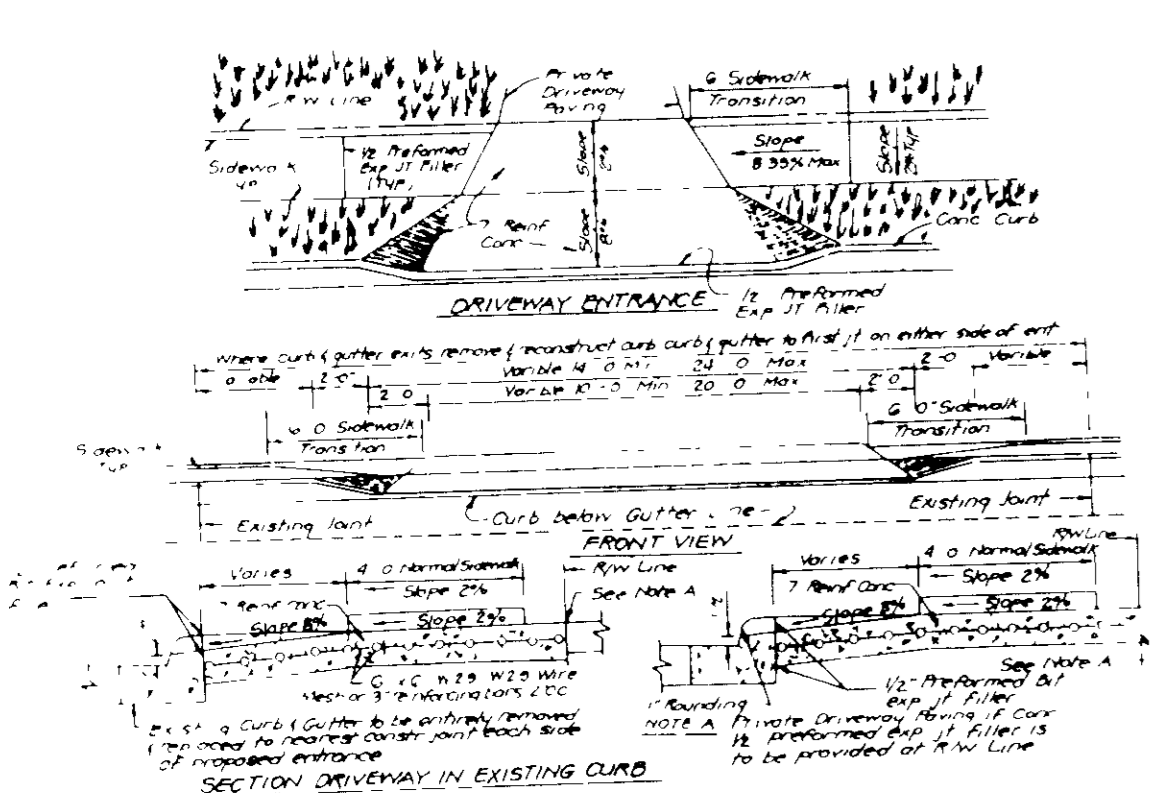 R/W Line
Private
Driveway
Paving
6 Sidewalk
Transition
Sidewalk
1/2 Preformed
Exp JT Filler
(TYP)
Slope
Slope
8 33% Max
Slope
2% TYP
7 Reinf
Conc
Slope
8%
Conc Curb
DRIVEWAY ENTRANCE
1/2 Preformed
Exp JT Filler
Where curb & gutter exits remove & reconstruct curb curb & gutter to first jt on either side of ent
2 0
Varible 14 0 Min 24 0 Max
2 0
Variable
2 0
Varible 10 - 0 Min 20 0 Max
2 0
6 0 Sidewalk
Transition
6 0" Sidewalk
Transition
Existing Joint
Curb below Gutter Line
Existing Joint
FRONT VIEW
Varies
4 0 Normal Sidewalk
Slope 2%
R/W Line
See Note A
7 Reinf Conc
Slope 8%
Slope 2%
6 x 6 W2 9 W2 9 Wire
Mesh or 3" reinforcing bars
Existing Curb & Gutter to be entirely removed
& replaced to nearest constr joint each side
of proposed entrance
SECTION DRIVEWAY IN EXISTING CURB
R/W Line
Varies
4 0 Normal Sidewalk
Slope 2%
7 Reinf Conc
Slope 8%
Slope 2%
See Note A
1/2" Preformed Bit
exp jt filler
1" Rounding
NOTE A Private Driveway Paving if Conc
1/2 preformed exp jt filler is
to be provided at R/W Line